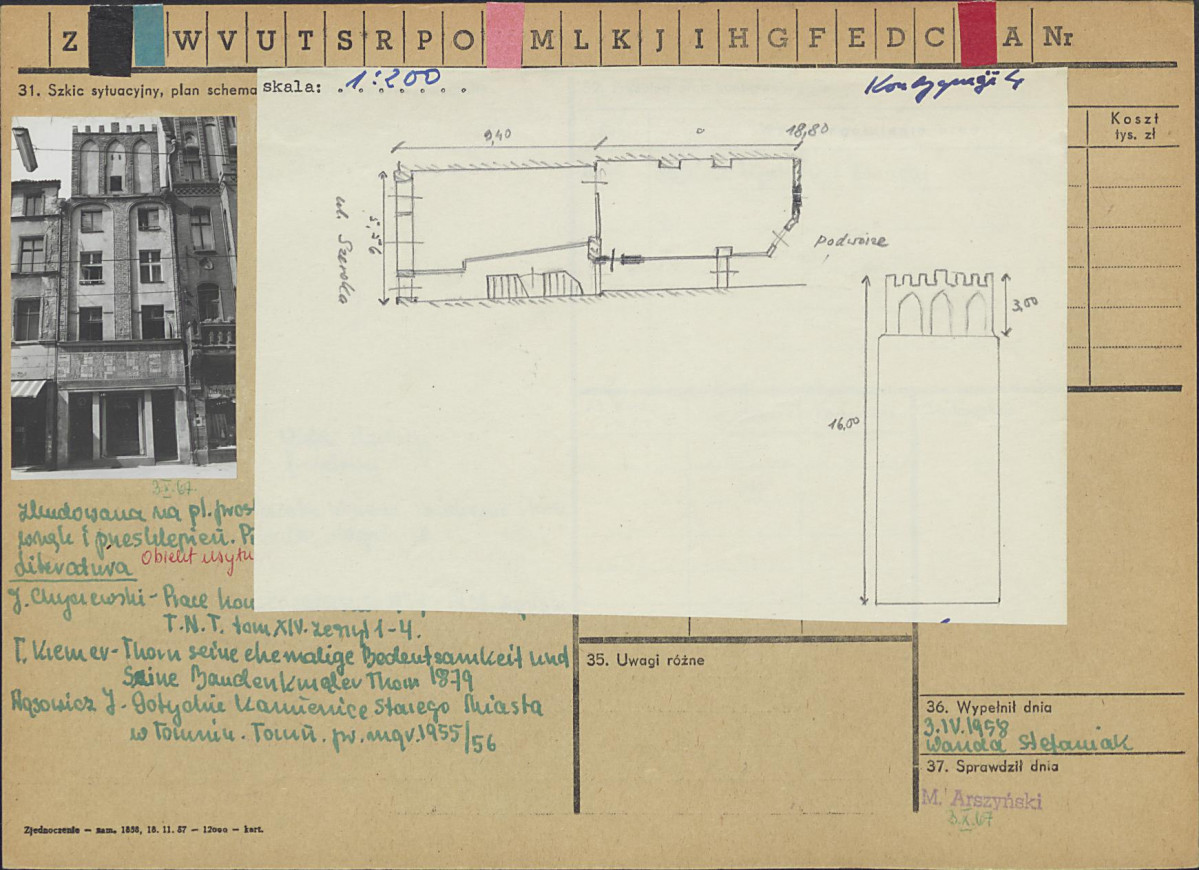 Z W V U T S R P O M L K J I H G F E D C A Nr
31. Szkic sytuacyjny, plan schema
skala: 1:200
Kondygnacji 4
Koszt
tys. zł
9,40
18,80
5,56
ul. Szeroka
podwórze
3,00
16,00
3.X.67
zbudowana na pl. prost
i przesklepień.
Literatura
Obiekt usytu
J. Chyczewski - Prace
T.N.T. tom XIV. zeszyt 1-4.
T. Kremer - Thorn seine ehemalige Bedeutsamkeit und
Seine Baudenkmäler Thorn 1879
Rąsowicz J. Gotyckie Kamienice Starego Miasta
w Toruniu. Toruń. pr. mgr. 1955/56
35. Uwagi różne
36. Wypełnił dnia
3.IV.1958
Wanda Stefaniak
37. Sprawdził dnia
M. Arszyński
3.X.67
Zjednoczenie — zam. 1858, 18. 11. 57 — 12000 — kart.